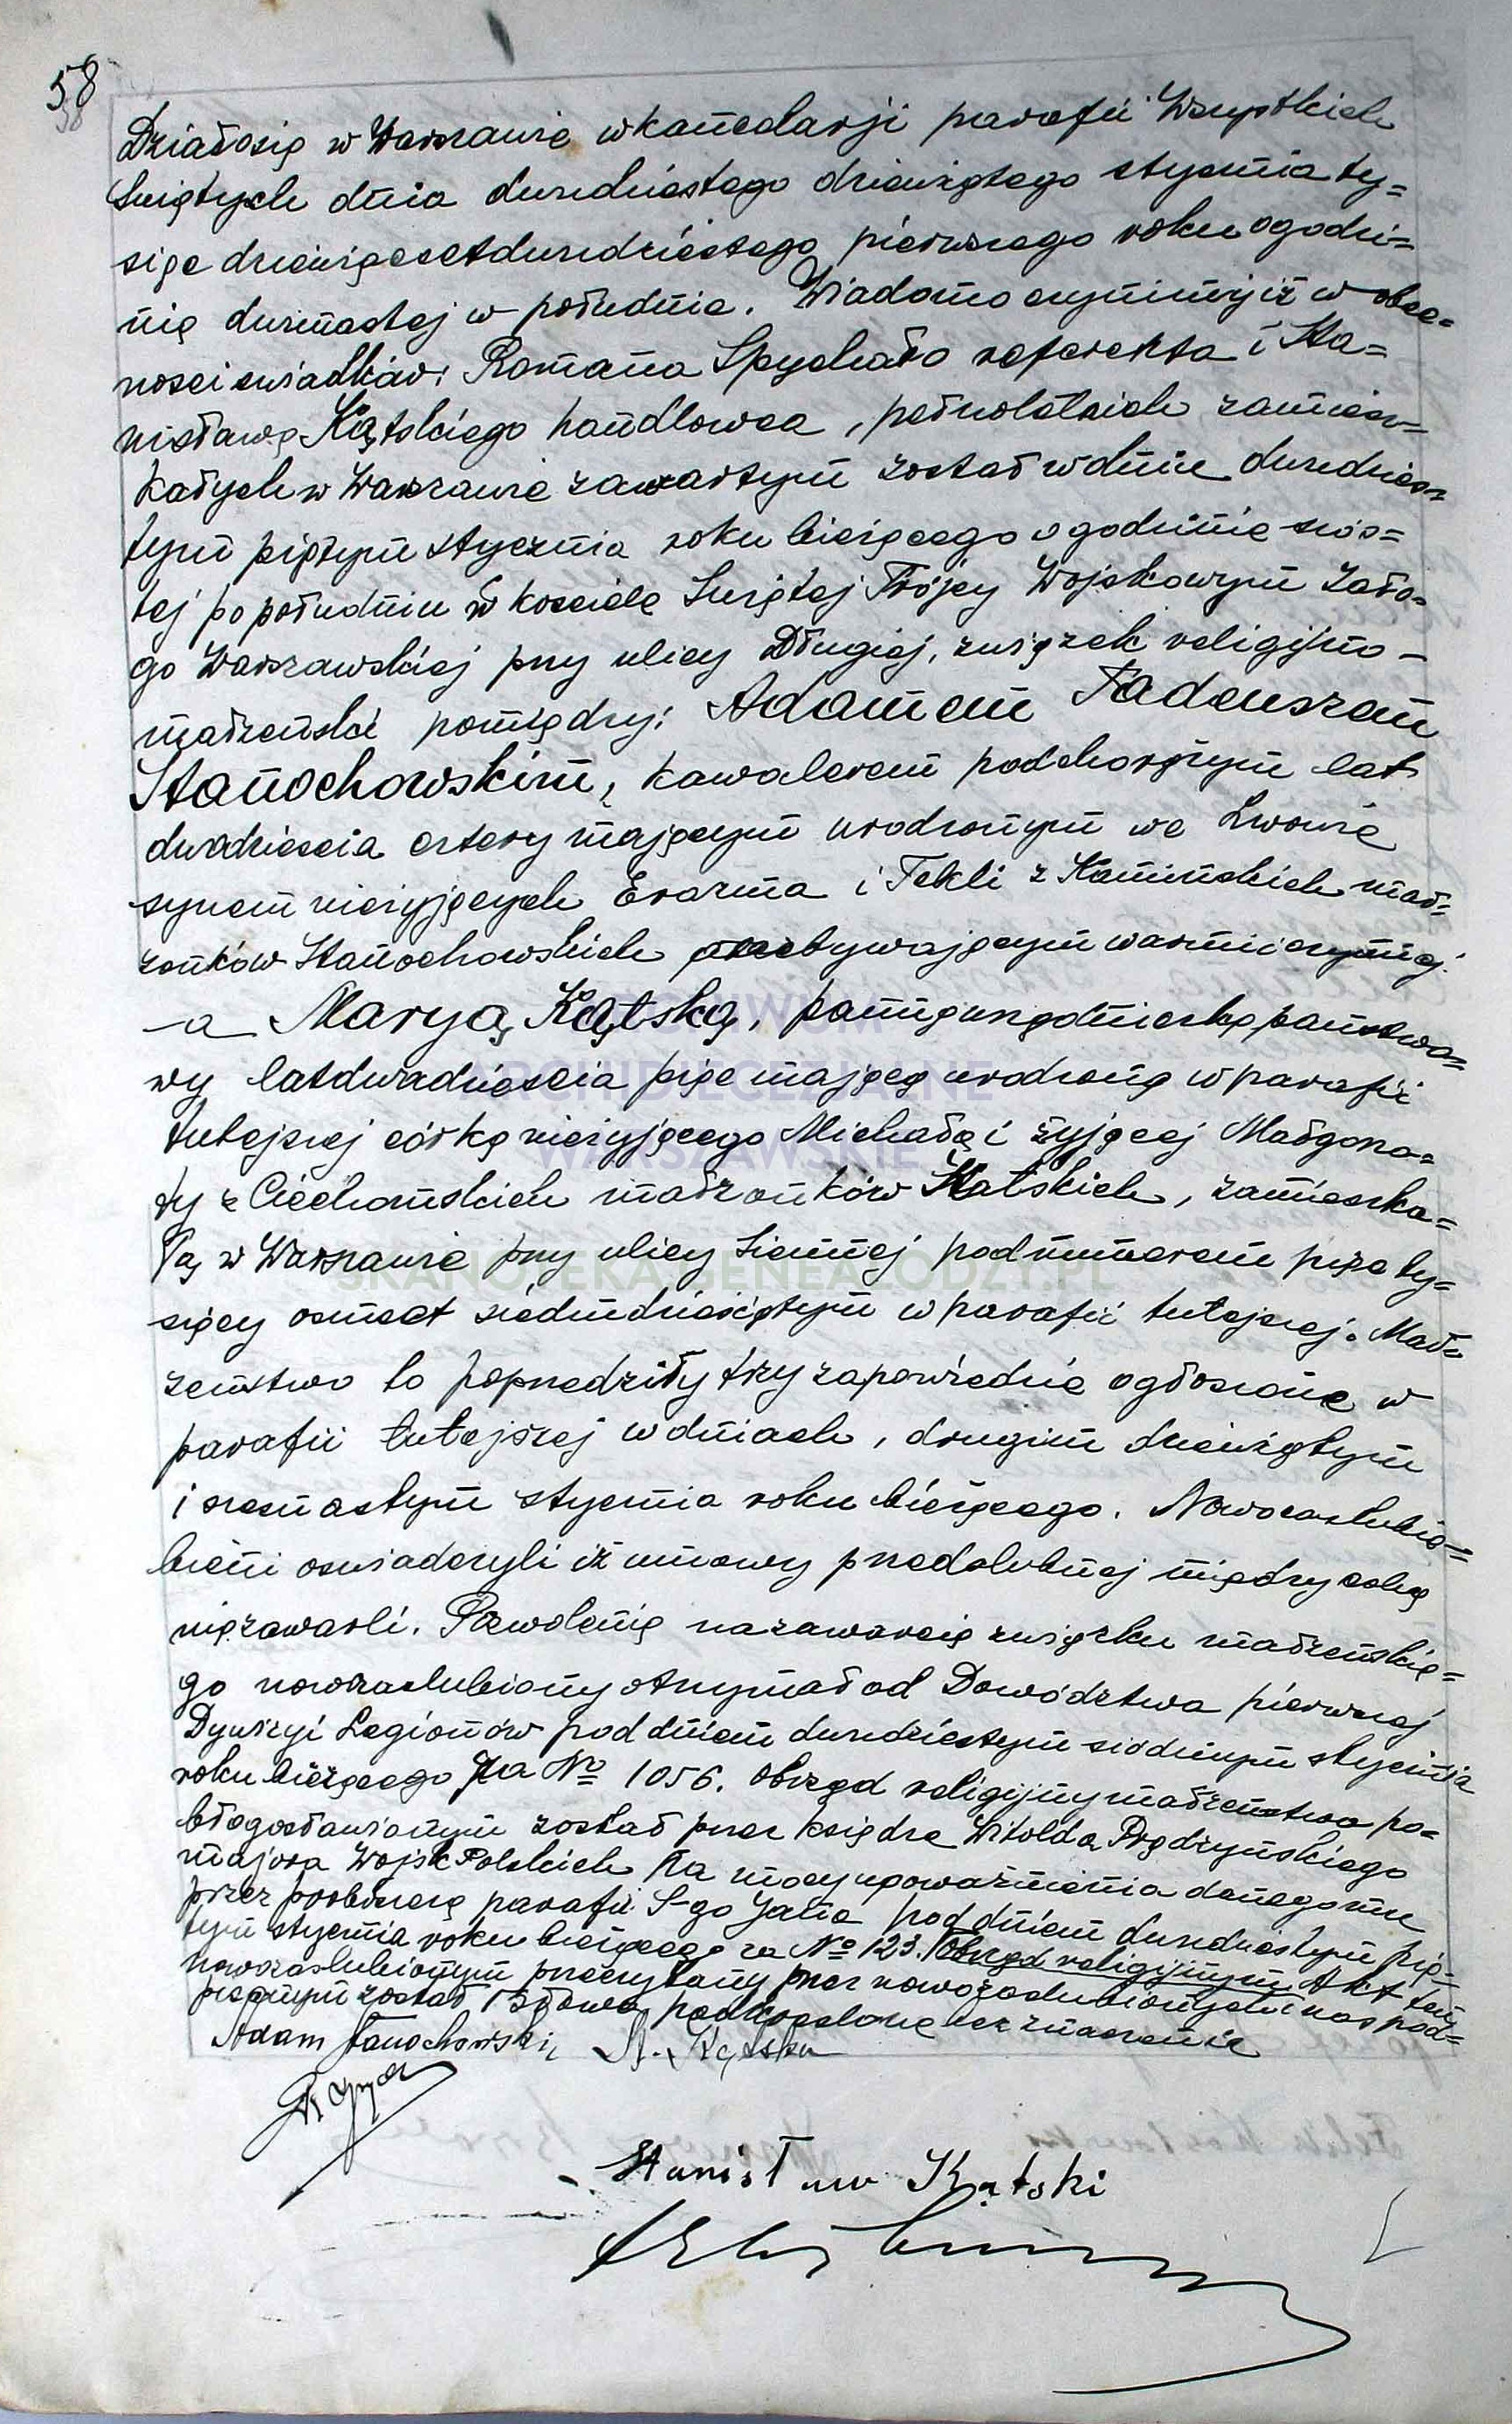 58
58
Działosię w Warszawie wkancelarji parafii Wszystkich
Swiętych dnia dwudziestego dziewiątego stycznia ty=
siąc dziewięćsetdwudziestego pierwszego roku ogodzi=
nie dwunastej w południe. Wiadomo czynimy iż w obec=
nosci swiadków: Romana Spychało referenta i Sta=
nisława Kątskiego handlowca, pełnoletnich zamiesz=
kałych w Warszawie zawartym został wdniu dwudzies=
tym piątym stycznia roku bieżącego ogodzinie szós=
tej popołudniu w kosciele Swiętej Trójcy Wojskowym Zało=
go Warszawskiej przy ulicy Długiej, związek religijno-
małżeński pomiędzy: Adamem Tadeuszem
Stanochowskim, kawalerem podchorążym lat
dwadziescia cztery mającym urodzonym we Lwowie
synem nieżyjących Erazma i Tekli z Kamińskich mał=
żonków Stanochowskich przebywającym warmii czynnej
-a Maryą Kątską, panną urzędniczką państwo=
wy latdwadziescia pięć mającą urodzoną w parafii
tutejszej córką nieżyjącego Michała i żyjącej Małgorza=
ty z Ciechomskich małżonków Kątskich, zamieszka=
łą w Warszawie przy ulicy Siennej podnumerem pięć ty=
sięcy osmset siedmdziesiątym w parafii tutejszej. Mał=
żeństwo to poprzedziły trzy zapowiedzie ogłoszone w
parafii tutejszej wdniach, drugim dziewiątym
i szesnastym stycznia roku bieżącego. Nowozaslubio=
bieni oswiadczyli iż umowy przedslubnej między sobą
niezawarli. Pozwolenie nazawarcie związku małżeńskie=
go nowozaslubiony otrzymał od Dowództwa pierwszej
Dywizyi Legionów pod dniem dwudziestym siódmym stycznia
roku bieżącego za № 1056. Obrzęd religijny małżeństwa po=
błogosławionym został przez księdza Witolda Prądzyńskiego
majora Wojsk Polskich na mocy upoważnienia danego mu
przez proboszcza parafii S-go Jana pod dniem dwudziestym pią=
tym stycznia roku bieżącego za № 123. Obrzęd religijnym Akt ten
nowozaslubionym przeczytany przez nowozaslubionych i nas pod=
pisanym został. Słowa podkreslone bez znaczenia
Adam Stanochowski, M. Kątska
Stanisław Kątski
ARCHIWUM
ARCHIDIECEZJALNE
WARSZAWSKIE
SKANOTEKA.GENEALODZY.PL